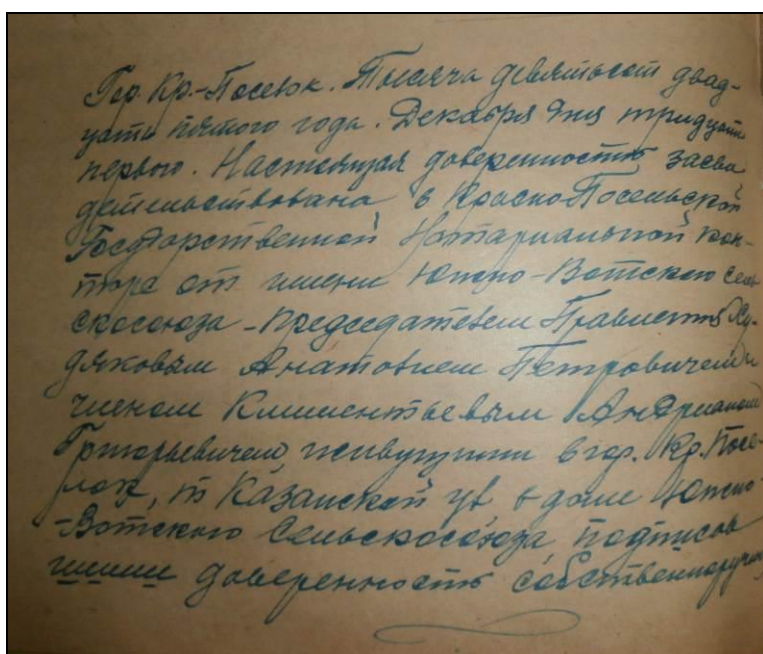 Гор. Кр.-Поселок. Тысяча девятьсот двад-
цать пятого года. Декабря дня тридцать
первого. Настоящая доверенность засви
детельствована в Красно-Посельской
Государственной Нотариальной Кон-
торе от имени Южно-Вотского сель
скосоюза - Председателем Правления Ху-
дяковым Анатолием Петровичем и
членом Климентьевым Андрианом
Григорьевичем, живущими в гор. Кр. Посе-
лок, по Казанской ул. в доме Южно-
-Вотского Сельскосоюза, подписав
шими доверенность собственноручно